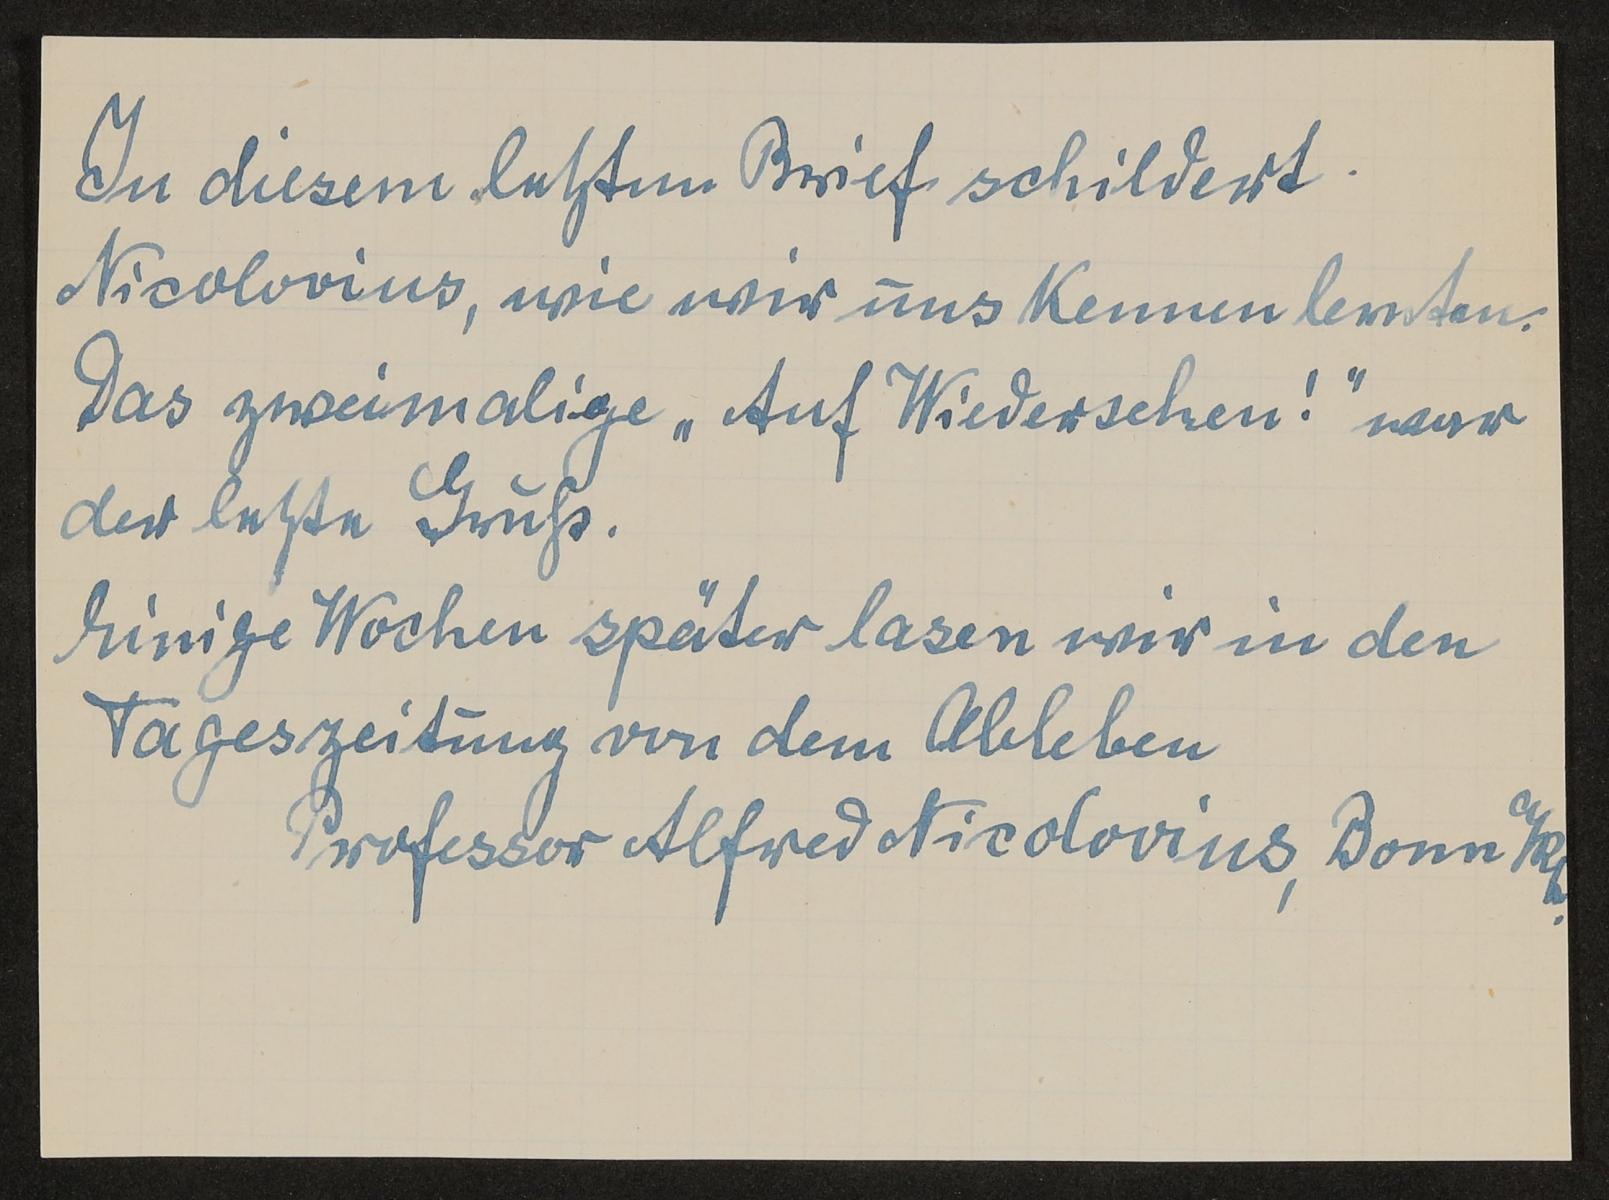 In diesem letzten Brief schildert
Nicolovius, wie wir uns kennen lernten.
Das zweimalige „Auf Wiedersehen!" war
der letzte Gruß.
Einige Wochen später lasen wir in den
Tageszeitung von dem Ableben
Professor Alfred Nicolovius, Bonn a/Rh.